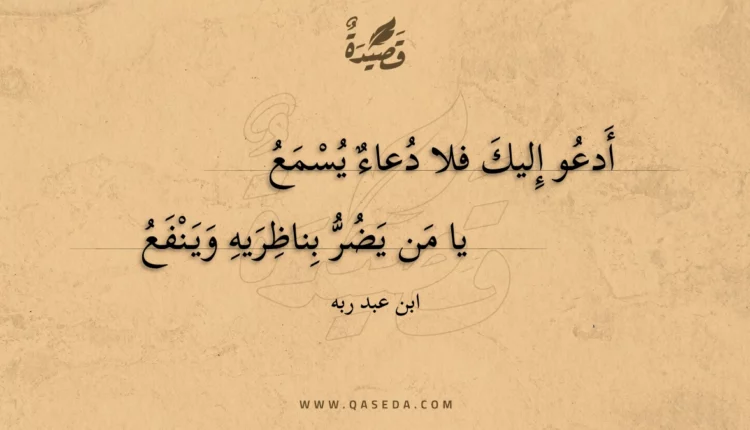 قَصِيْدَةٌ
أَدعُو إِليكَ فلا دُعاءٌ يُسْمَعُ
يا مَن يَضُرُّ بِناظِرَيهِ وَيَنْفَعُ
ابن عبد ربه
WWW.QASEDA.COM